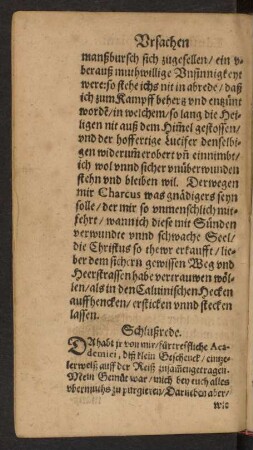 Vrsachen
manßbursch sich zugesellen/ ein v-
berauß muthwillige Vnsinnigkeyt
were: so stehe ichs nit in abrede/ daß
ich zum Kampff behertz vnd entzünt
wordē/ in welchem/ so lang die Hei-
ligen nit auß dem Him̄el gestossen/
vnd der hoffertige Lucifer denselbi-
gen widerum̄ erobert vn̄ einnimbt/
ich wol vnnd sicher vnüberwunden
stehn vnd bleiben wil. Derwegen
mir Charcus was gnädigers seyn
solle/ der mir so vnmenschlich mit-
fehrt/ wann ich diese mit Sünden
verwundte vnnd schwache Seel/
die Christus so thewr erkaufft/ lie-
ber dem sichern gewissen Weg vnd
Heerstrassen habe vertrauwen wöl-
len/ als in den Caluinischen Hecken
auffhencken/ ersticken vnnd stecken
lassen.
Schlußrede.
DA habt jr von mir/ fürtreffliche Aca-
demici, diß klein Geschenck/ eintze-
ler weiß auff der Reiß zusam̄engetragen.
Mein Gemüt war/ mich bey euch alles
vbernichs zu purgieren/ Darneben aber/
wie